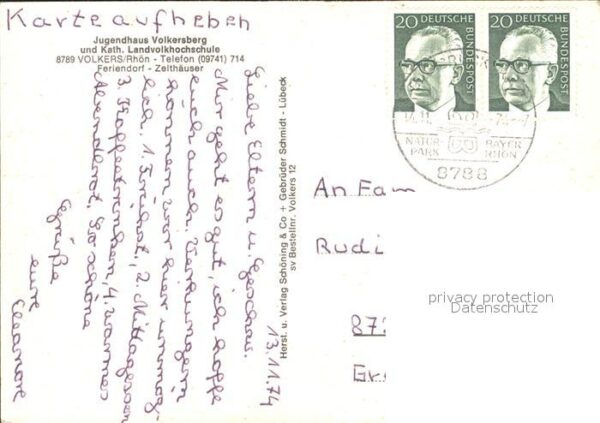 Karte aufheben
Jugendhaus Volkersberg
und Kath. Landvolkhochschule
8789 VOLKERS/Rhön - Telefon (09741) 714
Feriendorf - Zelthäuser
13.11.74
Liebe Eltern u. Geschw.
Mir geht es gut, ich hoffe
euch auch. Verhungern
können wir hier unmög-
lich. 1. Frühst., 2. Mittagessen
3. Kaffeetrinken, 4. warmes
Abendbrot. So schöne
Grüße
eure
Eleonore
Herst. u. Verlag Schöning & Co + Gebrüder Schmidt - Lübeck
sv Bestellnr. Volkers 12
20 DEUTSCHE BUNDESPOST
20 DEUTSCHE BUNDESPOST
14.11. 74
NATUR-
PARK
BAYER.
RHÖN
8788
An Fam
Rudi
87
Gr
privacy protection
Datenschutz